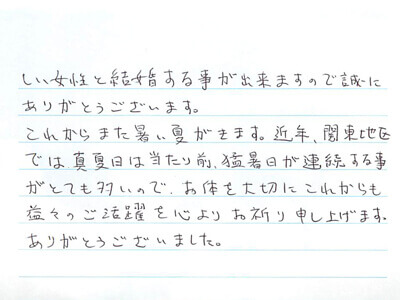 しい女性と結婚する事が出来ますので誠に
ありがとうございます。
これからまた暑い夏がきます。近年、関東地区
では、真夏日は当たり前、猛暑日が連続する事
がとても多いので、お体を大切にこれからも
益々のご活躍を心よりお祈り申し上げます。
ありがとうございました。